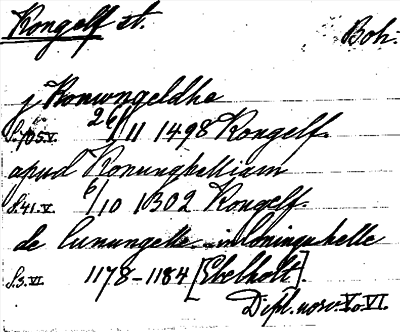 Kongelf st. Boh.
j Konungeldha
S.705.V. 26/11 1498 Kongelf.
apud Konunghelliam
S.41.V. 6/10 1302 Kongelf.
de Cunungelle
S.3.VI. 1178-1184 [Ebelholt].
Dipl. norv. V. o. VI.